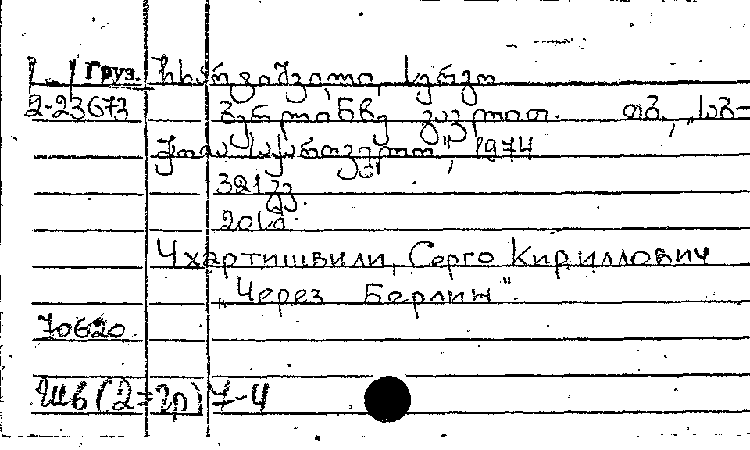 Груз. ჩხარტიშვილი, სერგო
2-23673 ბერლინზე გავლით. თბ., „საბ-
ჭოთა საქართველო", 1974
321 გვ.
20სმ.
Чхартишвили, Серго Кириллович
„Через Берлин".
70620.
Шв(2=Гр)7-4